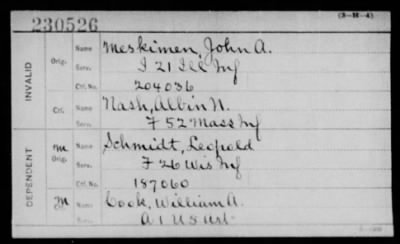 230526
(3-H-4)
INVALID
Orig.
Name Meskimen, John A.
Serv. I 21 Ill Inf
Ctf. No. 204036
Ctf.
Name Nash, Albin N.
Serv. F 52 Mass Inf
DEPENDENT
m
Orig.
Name Schmidt, Leopold
Serv. F 26 Wis Inf
Ctf. No. 187060
m
Name Cook, William A.
Serv. A 1 US Art.